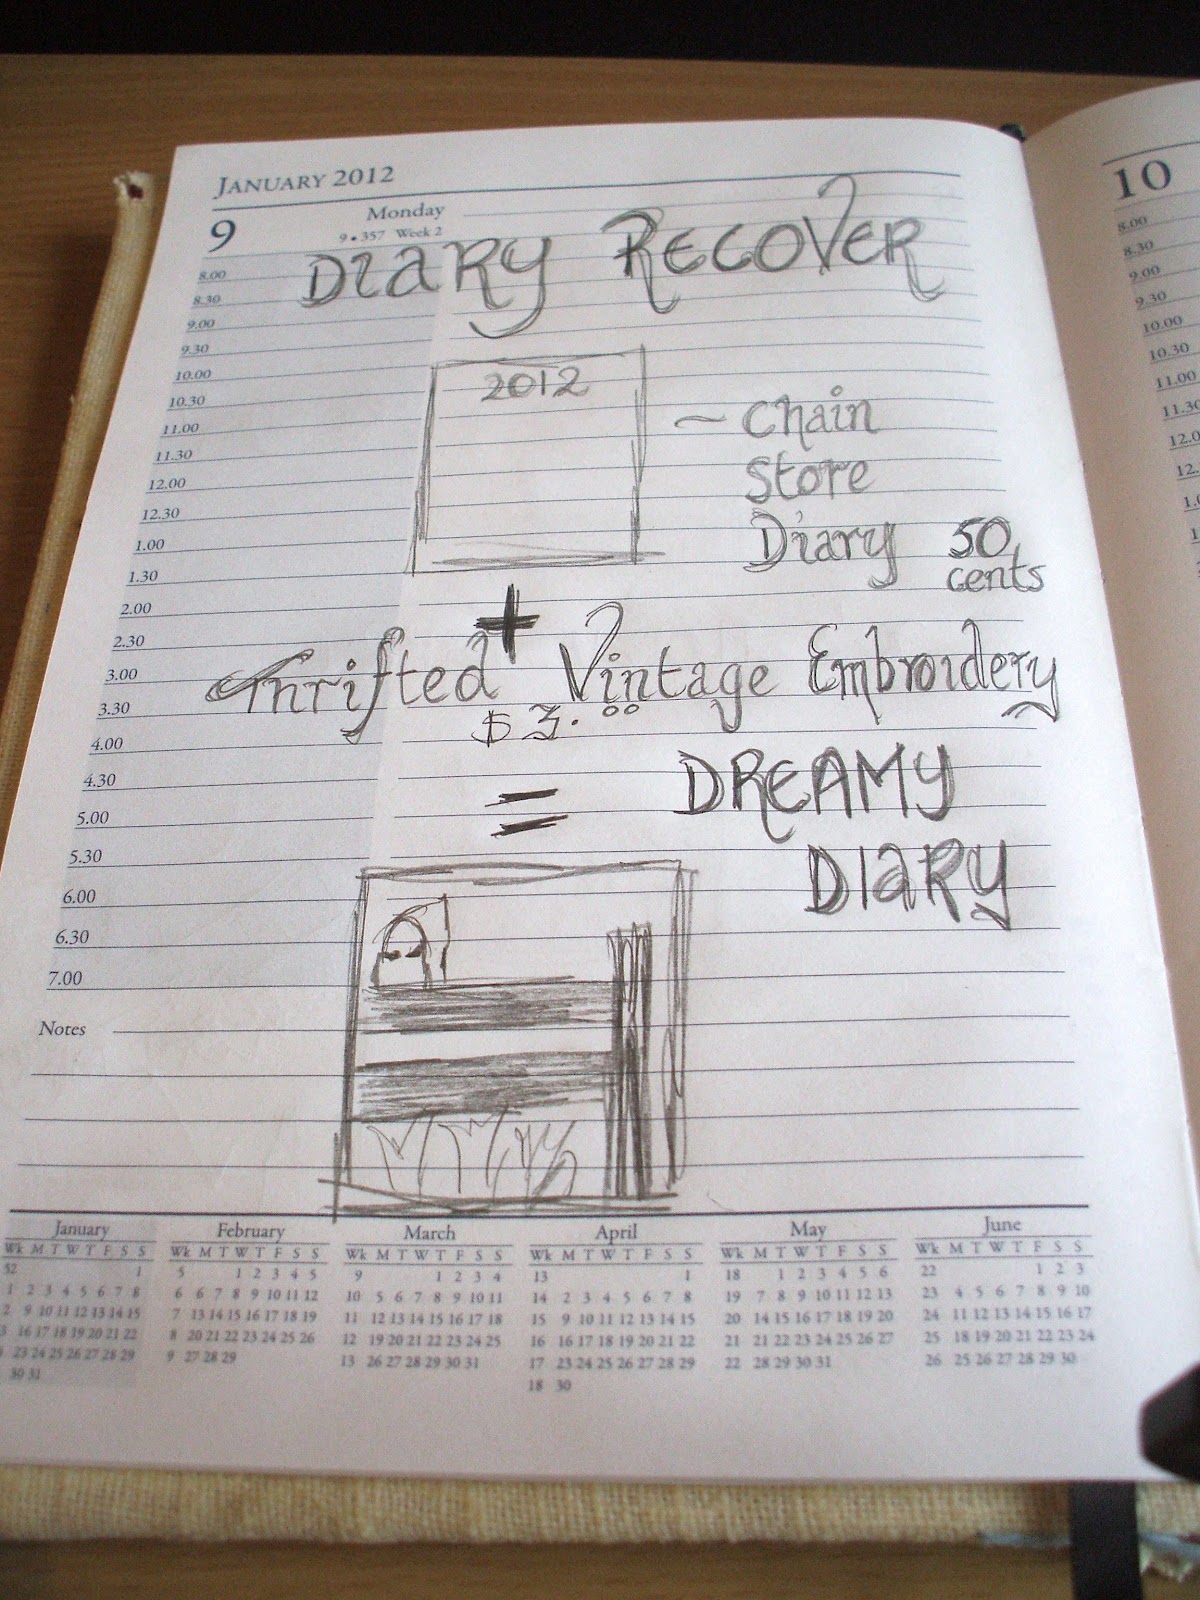 JANUARY 2012
9 Monday
9•357 Week 2
DIARY RECOVER
8.00
8.30
9.00
9.30
10.00
2012
10.30
11.00
~ Chain
11.30
Store
12.00
12.30
Diary 50
cents
1.00
1.30
2.00
+
2.30
3.00
Thrifted Vintage Embroidery
3.30
$ 3.00
4.00
4.30
= DREAMY
5.00
5.30
DIARY
6.00
6.30
7.00
Notes
January
Wk M T W T F S S
52 1
1 2 3 4 5 6 7 8
2 9 10 11 12 13 14 15
3 16 17 18 19 20 21 22
23 24 25 26 27 28 29
30 31
February
Wk M T W T F S S
5 1 2 3 4 5
6 6 7 8 9 10 11 12
7 13 14 15 16 17 18 19
8 20 21 22 23 24 25 26
9 27 28 29
March
Wk M T W T F S S
9 1 2 3 4
10 5 6 7 8 9 10 11
11 12 13 14 15 16 17 18
12 19 20 21 22 23 24 25
13 26 27 28 29 30 31
April
Wk M T W T F S S
13 1
14 2 3 4 5 6 7 8
15 9 10 11 12 13 14 15
16 16 17 18 19 20 21 22
17 23 24 25 26 27 28 29
18 30
May
Wk M T W T F S S
18 1 2 3 4 5 6
19 7 8 9 10 11 12 13
20 14 15 16 17 18 19 20
21 21 22 23 24 25 26 27
22 28 29 30 31
June
Wk M T W T F S S
22 1 2 3
23 4 5 6 7 8 9 10
24 11 12 13 14 15 16 17
25 18 19 20 21 22 23 24
26 25 26 27 28 29 30
10
8.00
8.30
9.00
9.30
10.00
10.30
11.00
11.30